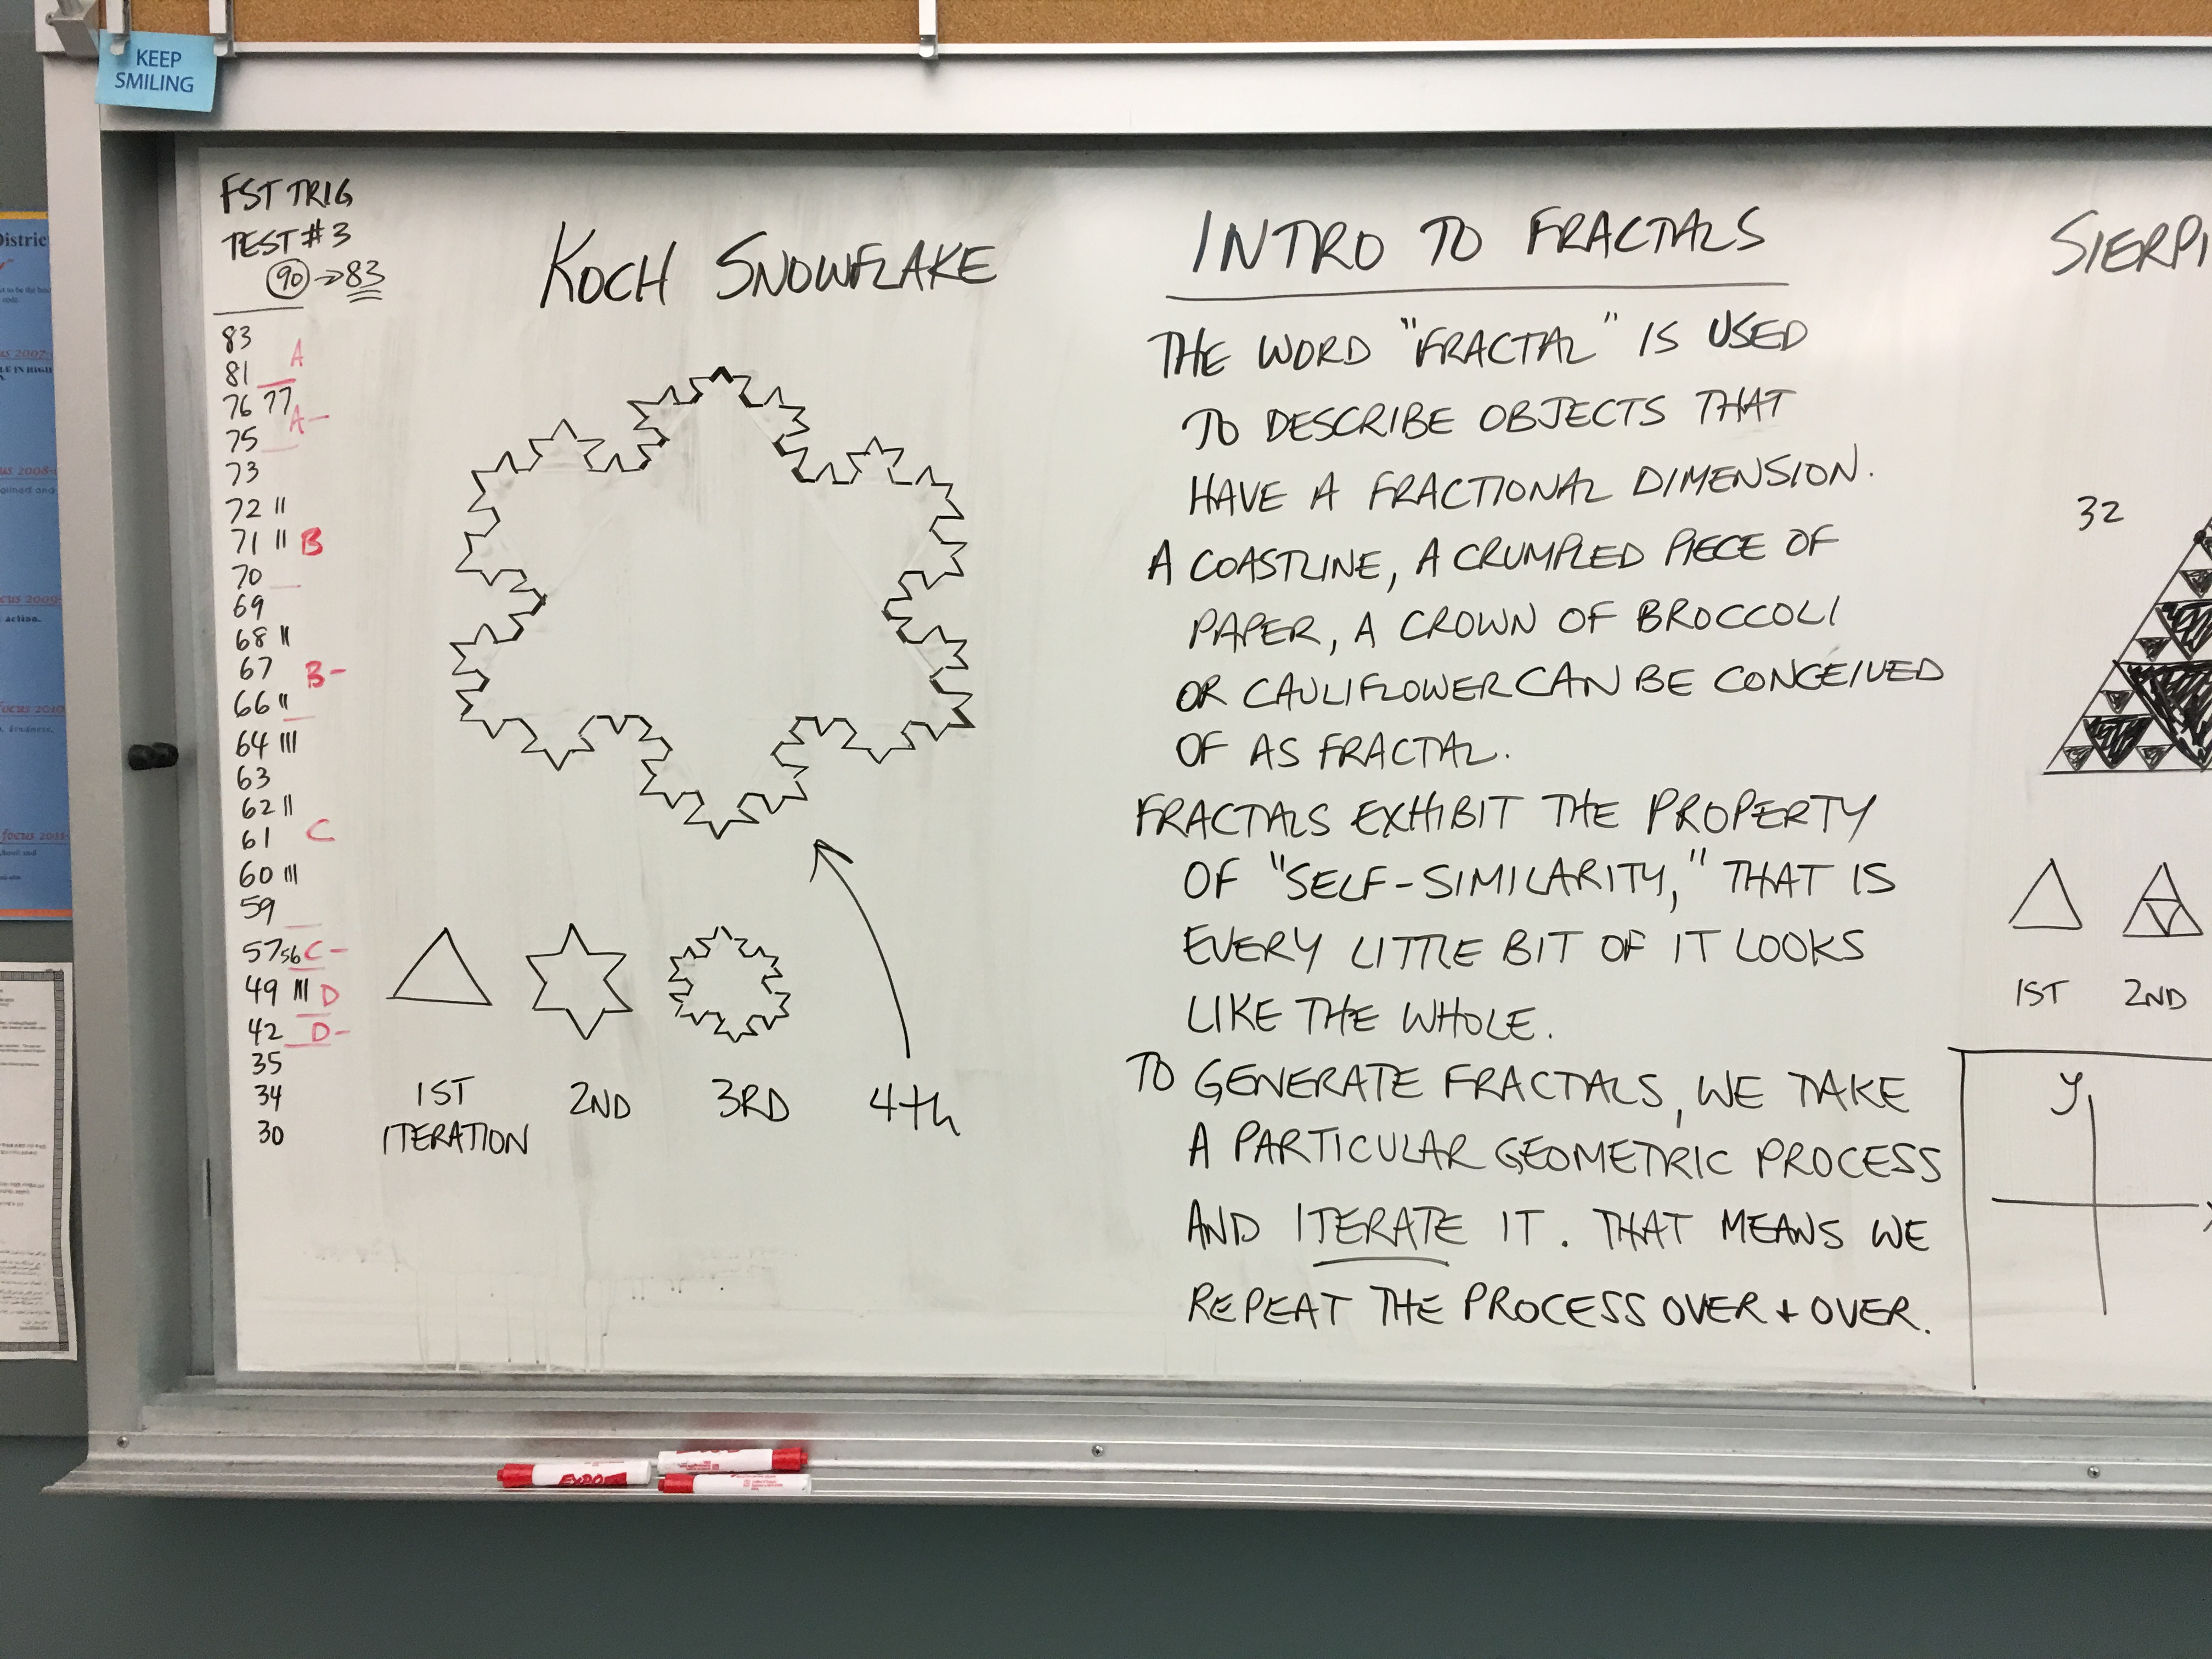 KEEP
SMILING
District
us 2007-
us 2008-
cus 2009-
action.
focus 2010
focus 2011-
FST TRIG
TEST #3
90 → 83
83
A
81
76 77
A-
75
73
72 ||
71 || B
70
69
68 ||
67 B-
66 ||
64 |||
63
62 ||
61 C
60 |||
59
57 56 C-
49 ||| D
42 D-
35
34
30
KOCH SNOWFLAKE
1ST 2ND 3RD 4th
ITERATION
INTRO TO FRACTALS
THE WORD "FRACTAL" IS USED
TO DESCRIBE OBJECTS THAT
HAVE A FRACTIONAL DIMENSION.
A COASTLINE, A CRUMPLED PIECE OF
PAPER, A CROWN OF BROCCOLI
OR CAULIFLOWER CAN BE CONCEIVED
OF AS FRACTAL.
FRACTALS EXHIBIT THE PROPERTY
OF "SELF-SIMILARITY," THAT IS
EVERY LITTLE BIT OF IT LOOKS
LIKE THE WHOLE.
TO GENERATE FRACTALS, WE TAKE
A PARTICULAR GEOMETRIC PROCESS
AND ITERATE IT. THAT MEANS WE
REPEAT THE PROCESS OVER + OVER.
SIERPI
32
1ST 2ND
y
EXPO